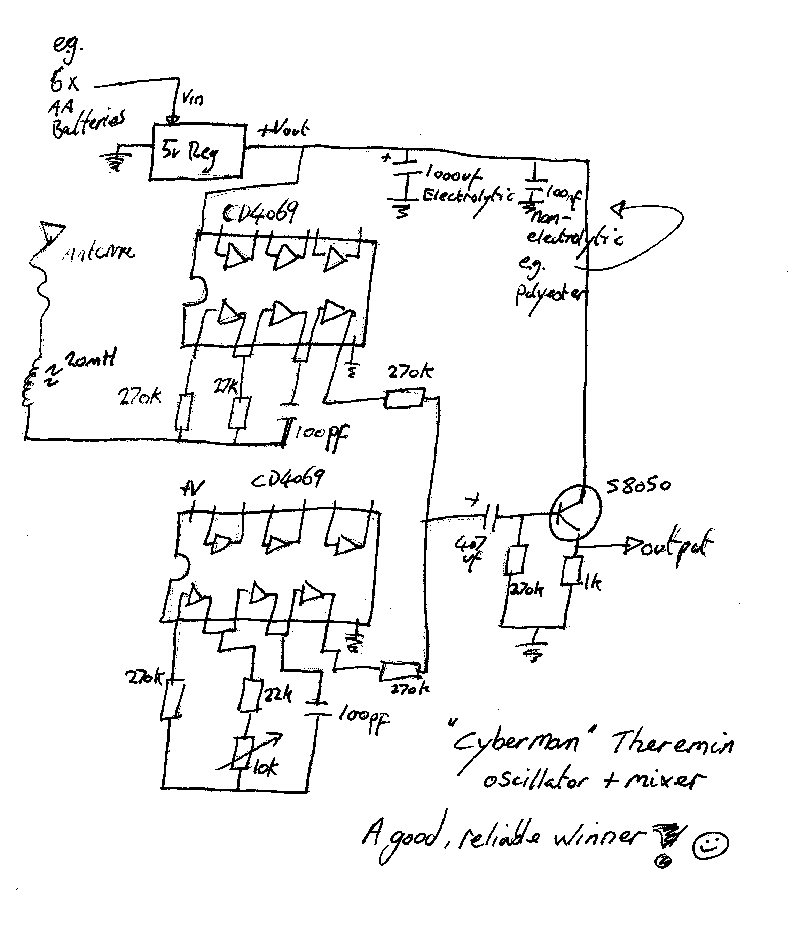 e.g.
6x
AA
Batteries
Vin
5v Reg
+Vout
+
1000uf
Electrolytic
100nf
Non-
electrolytic
e.g.
polyester
CD4069
Antenna
20mH
270k
27k
100pf
270k
+V
CD4069
+
4.7
uf
S8050
output
270k
1k
270k
22k
10k
100pf
270k
"Cyberman" Theremin
oscillator + mixer
A good, reliable winner!